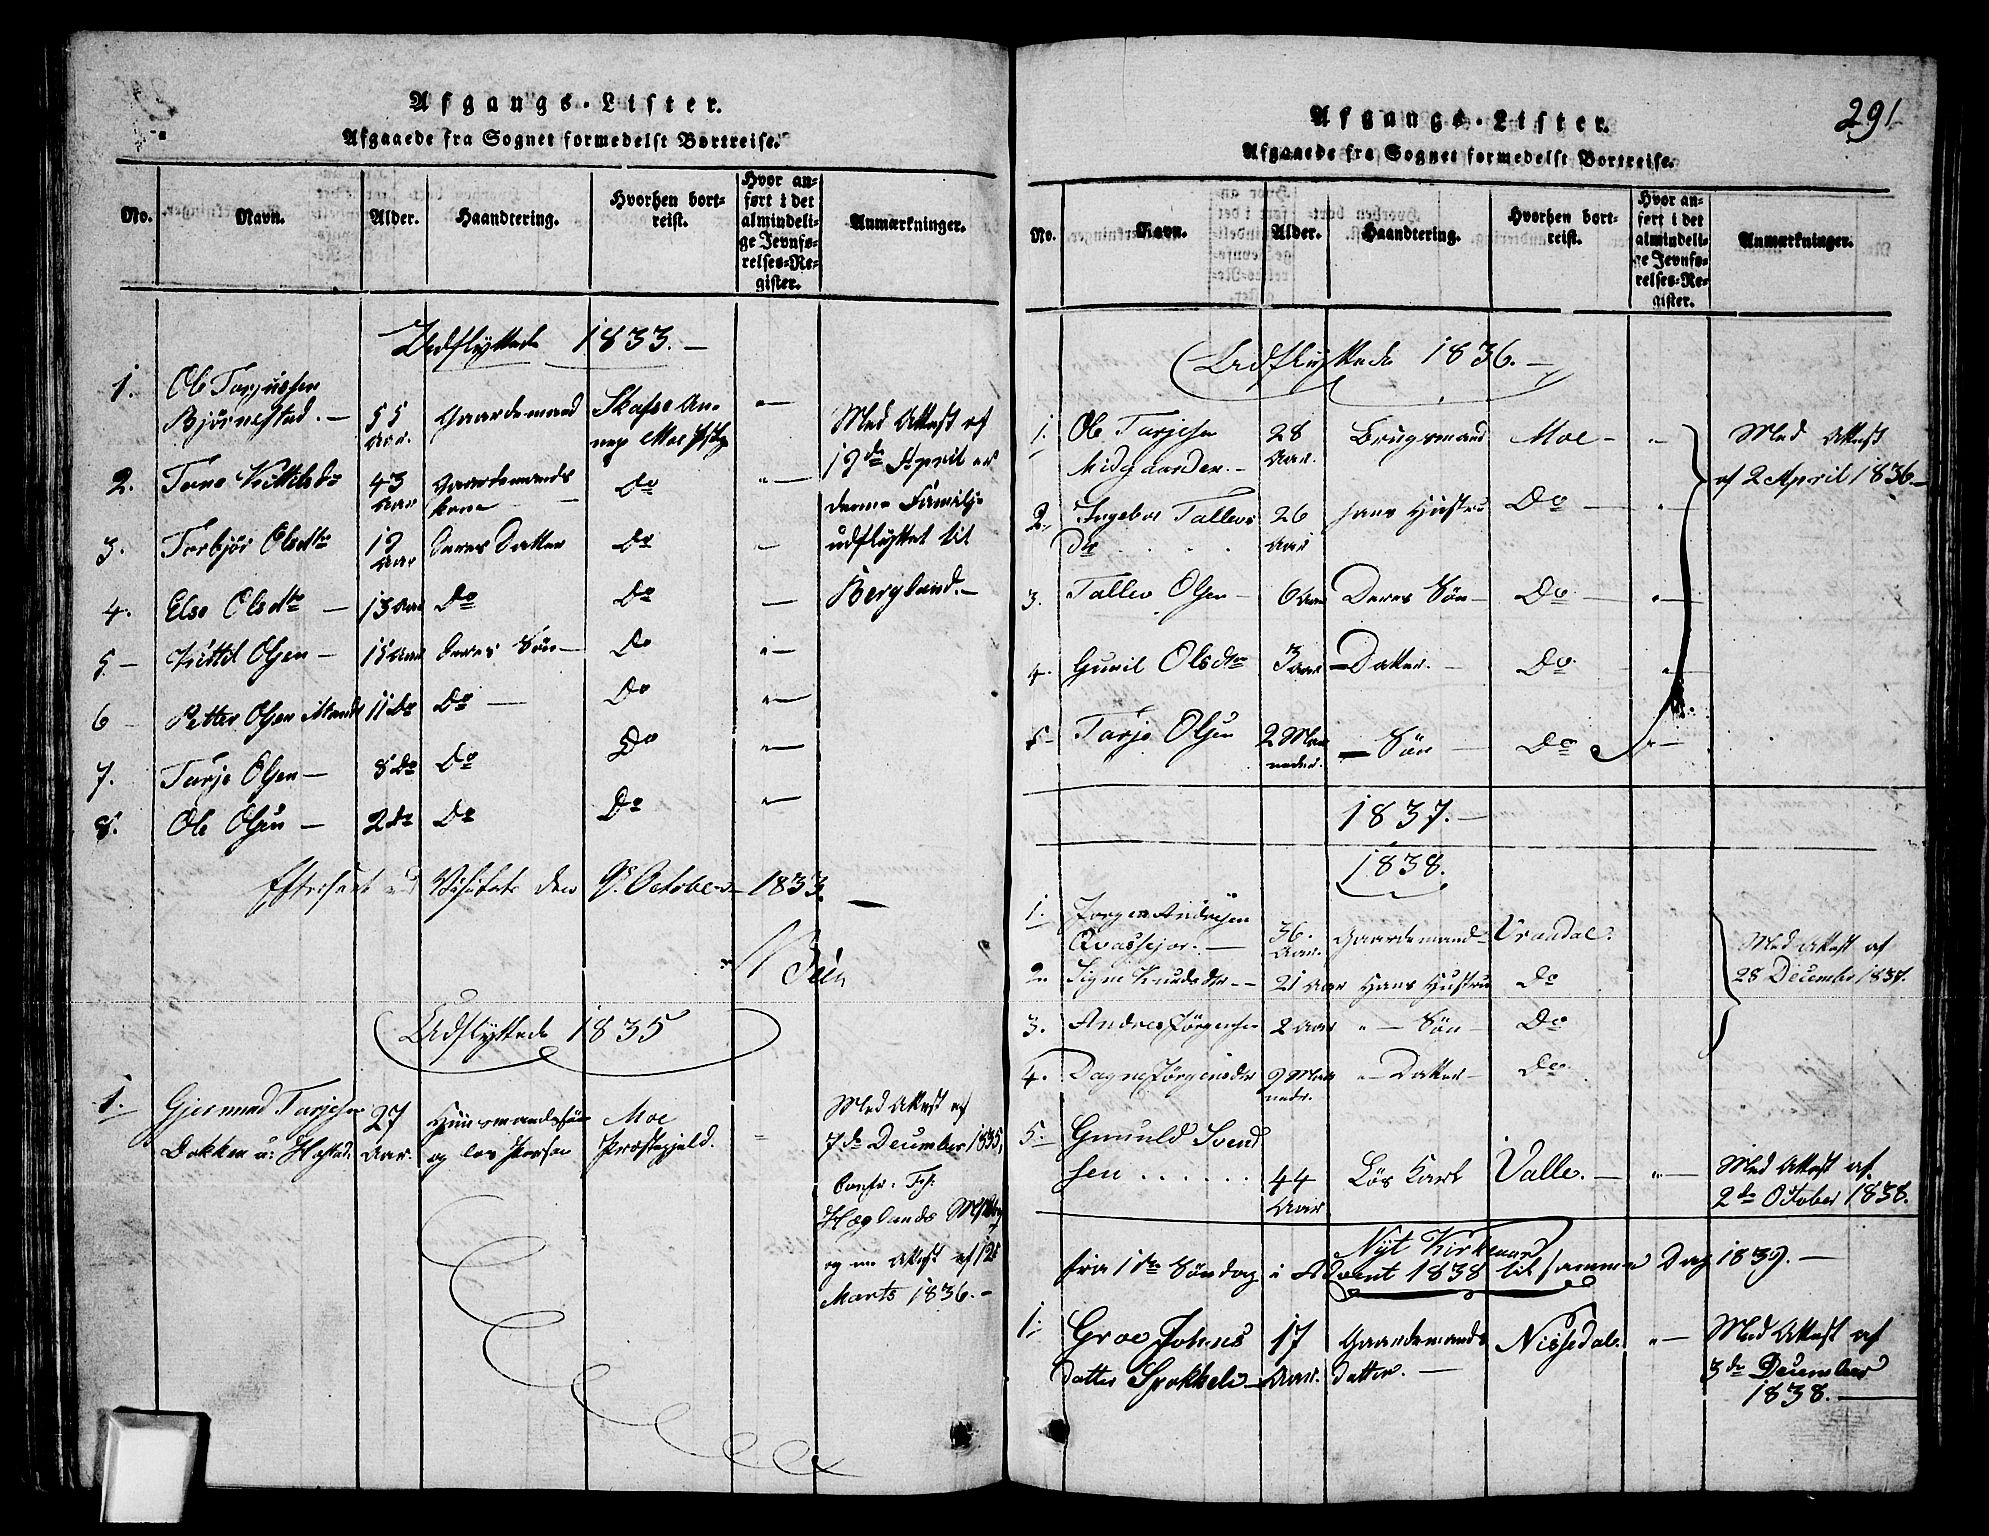 Afgangs-Lister.
Afgaaede fra Sognet formedelst Bortreise.
No. Navn. Alder. Haandtering. Hvorhen bortreist. Hvor anført i det almindelige Jevnførelses-Register. Anmærkninger.
Udflyttede 1833. —
1. Ole Torjussen
Bjørnestad. — 55 Aar. Gaardemand Skafse An-
nex Moe
2. Tone Kittilsdr 43 Aar Gaardemands kone Do "—
3. Torbjør Olsdtr 19 Aar deres Datter Do "—
4. Else Olsdtr — 13 Aar Do Do —
5 — Kittil Olsen — 15 Aar deres Søn — Do "—
6 — Petter Olsen 11 Do Do — Do "—
7. Tarje Olsen — 8 Do Do Do "—
8. Ole Olsen — 2 do Do Do "—
Med Attest af
19de April er
denne Familje
udflyttet til
Bergland. —
Efterseet ved Visitats den 9. October 1833. —
Udflyttede 1835
1. Gjermund Tarjesen
Dokken u: 27 Aar. Huusmandssøn
og løs Person Moe
Præstegjeld. "
Med Attest af
7de December 1835,
Confr.
Høglands
og en Attest af 12
Marts 1836. —
291
Afgangs-Lister.
Afgaaede fra Sognet formedelst Bortreise.
No. Navn. Alder. Haandtering. Hvorhen bortreist. Hvor anført i det almindelige Jevnførelses-Register. Anmærkninger.
Udflyttede 1836. —
1. Ole Tarjesen
Midgaarden. — 28 Aar. Brugsmand Moe — "—
2. Ingebor Tallevs
Dtr 26 Aar hans Hustru Do — "
3. Tallev Olsen — 6 Aar Deres Søn — Do — "—
4. Guril Olsdtr 3 Aar — Datter. — Do "
5 — Tarje Olsen 2 Maaneder. — Søn — Do "—
Med Attest
af 2 April 1836 —
1837. —
1838.
1. Jørgen Andresen
Qvassejor. — 36. Aar. Gaardemand Vraadal.
2. Signe Knudsdtr — 21 Aar Hans Hustru Do
3. Andres Jørgensen 2 Aar "— Søn — Do
4. Dagne Jørgensdtr 9 Maaneder. "— Datter — Do.
Med Attest af
28 December 1837.
5. — Gunuld Svend
sen . . . . . . 44 Aar Løs Karl Valle. — "— Med Attest af
2de October 1838.
Nyt Kirkeaar
fra 1ste Søndag i Advent 1838 til samme Dag 1839. —
1. Groe Johns
datter Spokkeli — 17 Aar. Gaardemands
datter. — Nissedal. "— Med Attest af
3de December
1838. —